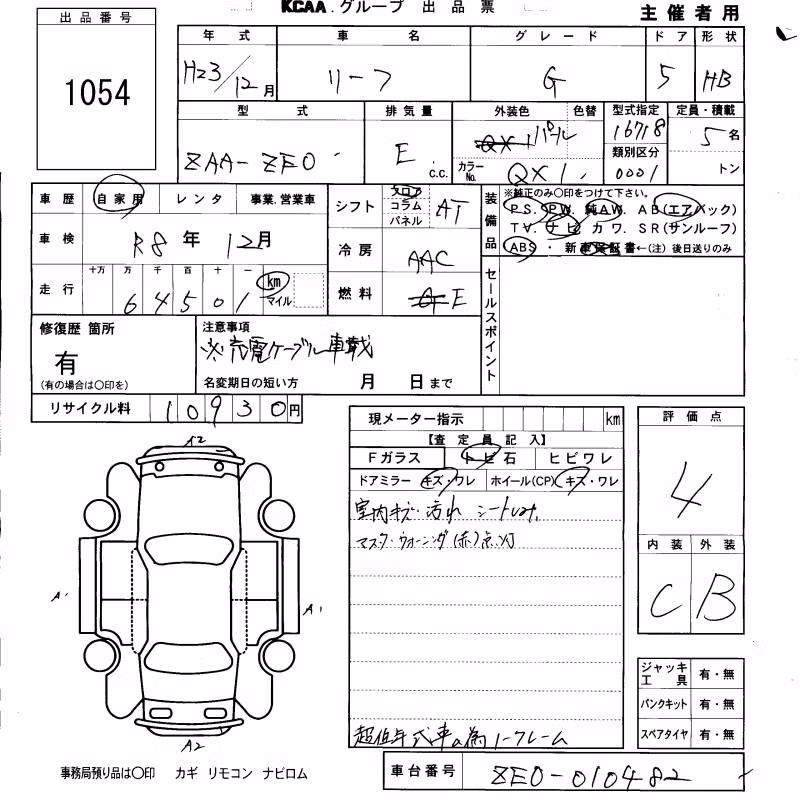 KCAA.グループ 出品票
主催者用
出品番号
1054
年式 車名 グレード ドア 形状
H23/12月 リーフ G 5 HB
型式 排気量 外装色 色替 型式指定 定員・積載
ZAA-ZE0 E c.c. パール 16718 5名
カラーNo. QX1 類別区分 0001 トン
車歴 自家用 レンタ 事業.営業車
シフト フロア コラム パネル AT
装備品
※純正のみ〇印をつけて下さい。
PS. PW. 純AW. AB(エアバック)
TV. ナビ カワ. SR(サンルーフ)
ABS・新車保証書←(注)後日送りのみ
車検 R8年12月
冷房 AAC
走行 十万 万 千 百 十 一
64501 km マイル
燃料 E
セールスポイント
修復歴 箇所
有
(有の場合は〇印を)
注意事項
※充電ケーブル車載
名変期日の短い方 月 日まで
リサイクル料 10930円
現メーター指示 km
【査定員記入】
Fガラス トビ石 ヒビワレ
ドアミラー キズ・ワレ ホイール(CP) キズ・ワレ
室内キズ・汚れ シートしみ.
マスタ・ウォーニング(赤)点灯
超低年式車の為ノークレーム
評価点
4
内装 外装
C B
ジャッキ工具 有・無
パンクキット 有・無
スペアタイヤ 有・無
A2
A1
A1
A2
事務局預り品は〇印 カギ リモコン ナビロム
車台番号 ZE0-010482